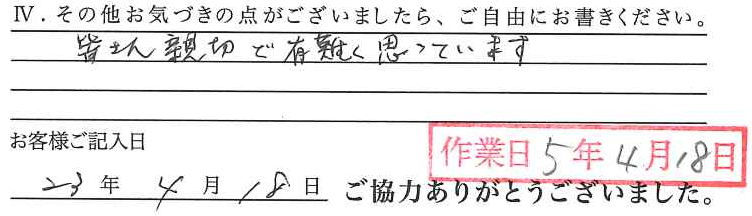 Ⅳ．その他お気づきの点がございましたら、ご自由にお書きください。
皆さん親切で有難く思っています
お客様ご記入日
作業日 5年 4月 18日
23 年 4 月 18 日 ご協力ありがとうございました。